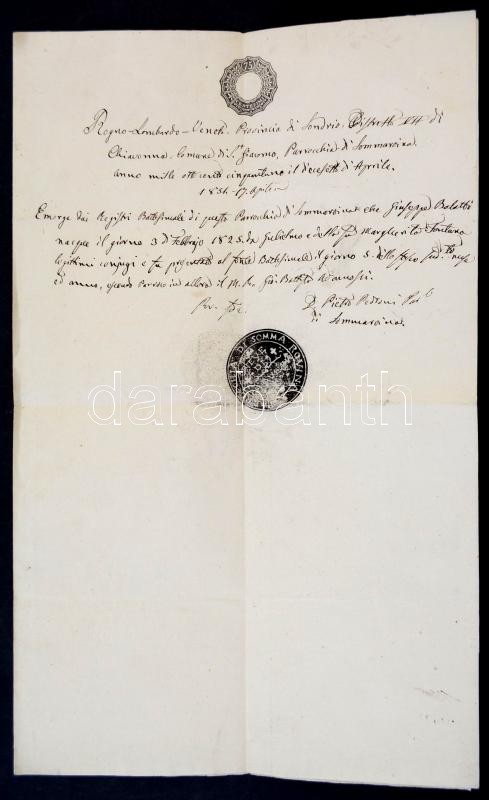 75
Regno-Lombardo-Veneto. Provincia di Sondrio. Distretto di
Chiavenna, Comune di S. Giacomo, Parrocchia di Sommarovina.
anno mille otto cento cinquantuno il diecisette di Aprile.
1851-17. Aprile
Emerge dai Registri Battesimali di questa Parrocchia di Sommarovina che Giuseppe Balatti
nacque il giorno 3 di Febbrajo 1825 da Gulielmo e della fu Margherita Fontana
legittimi conjugi e fu presentato al fonte Battesimale il giorno 5. dello stesso mese
ed anno, essendo Parroco in allora il M. Ro. Gio: Batista
Per fede.
D. Pietro Pedroni Par.
di Sommarovina.
DI SOMMA ROVINA
darabanth